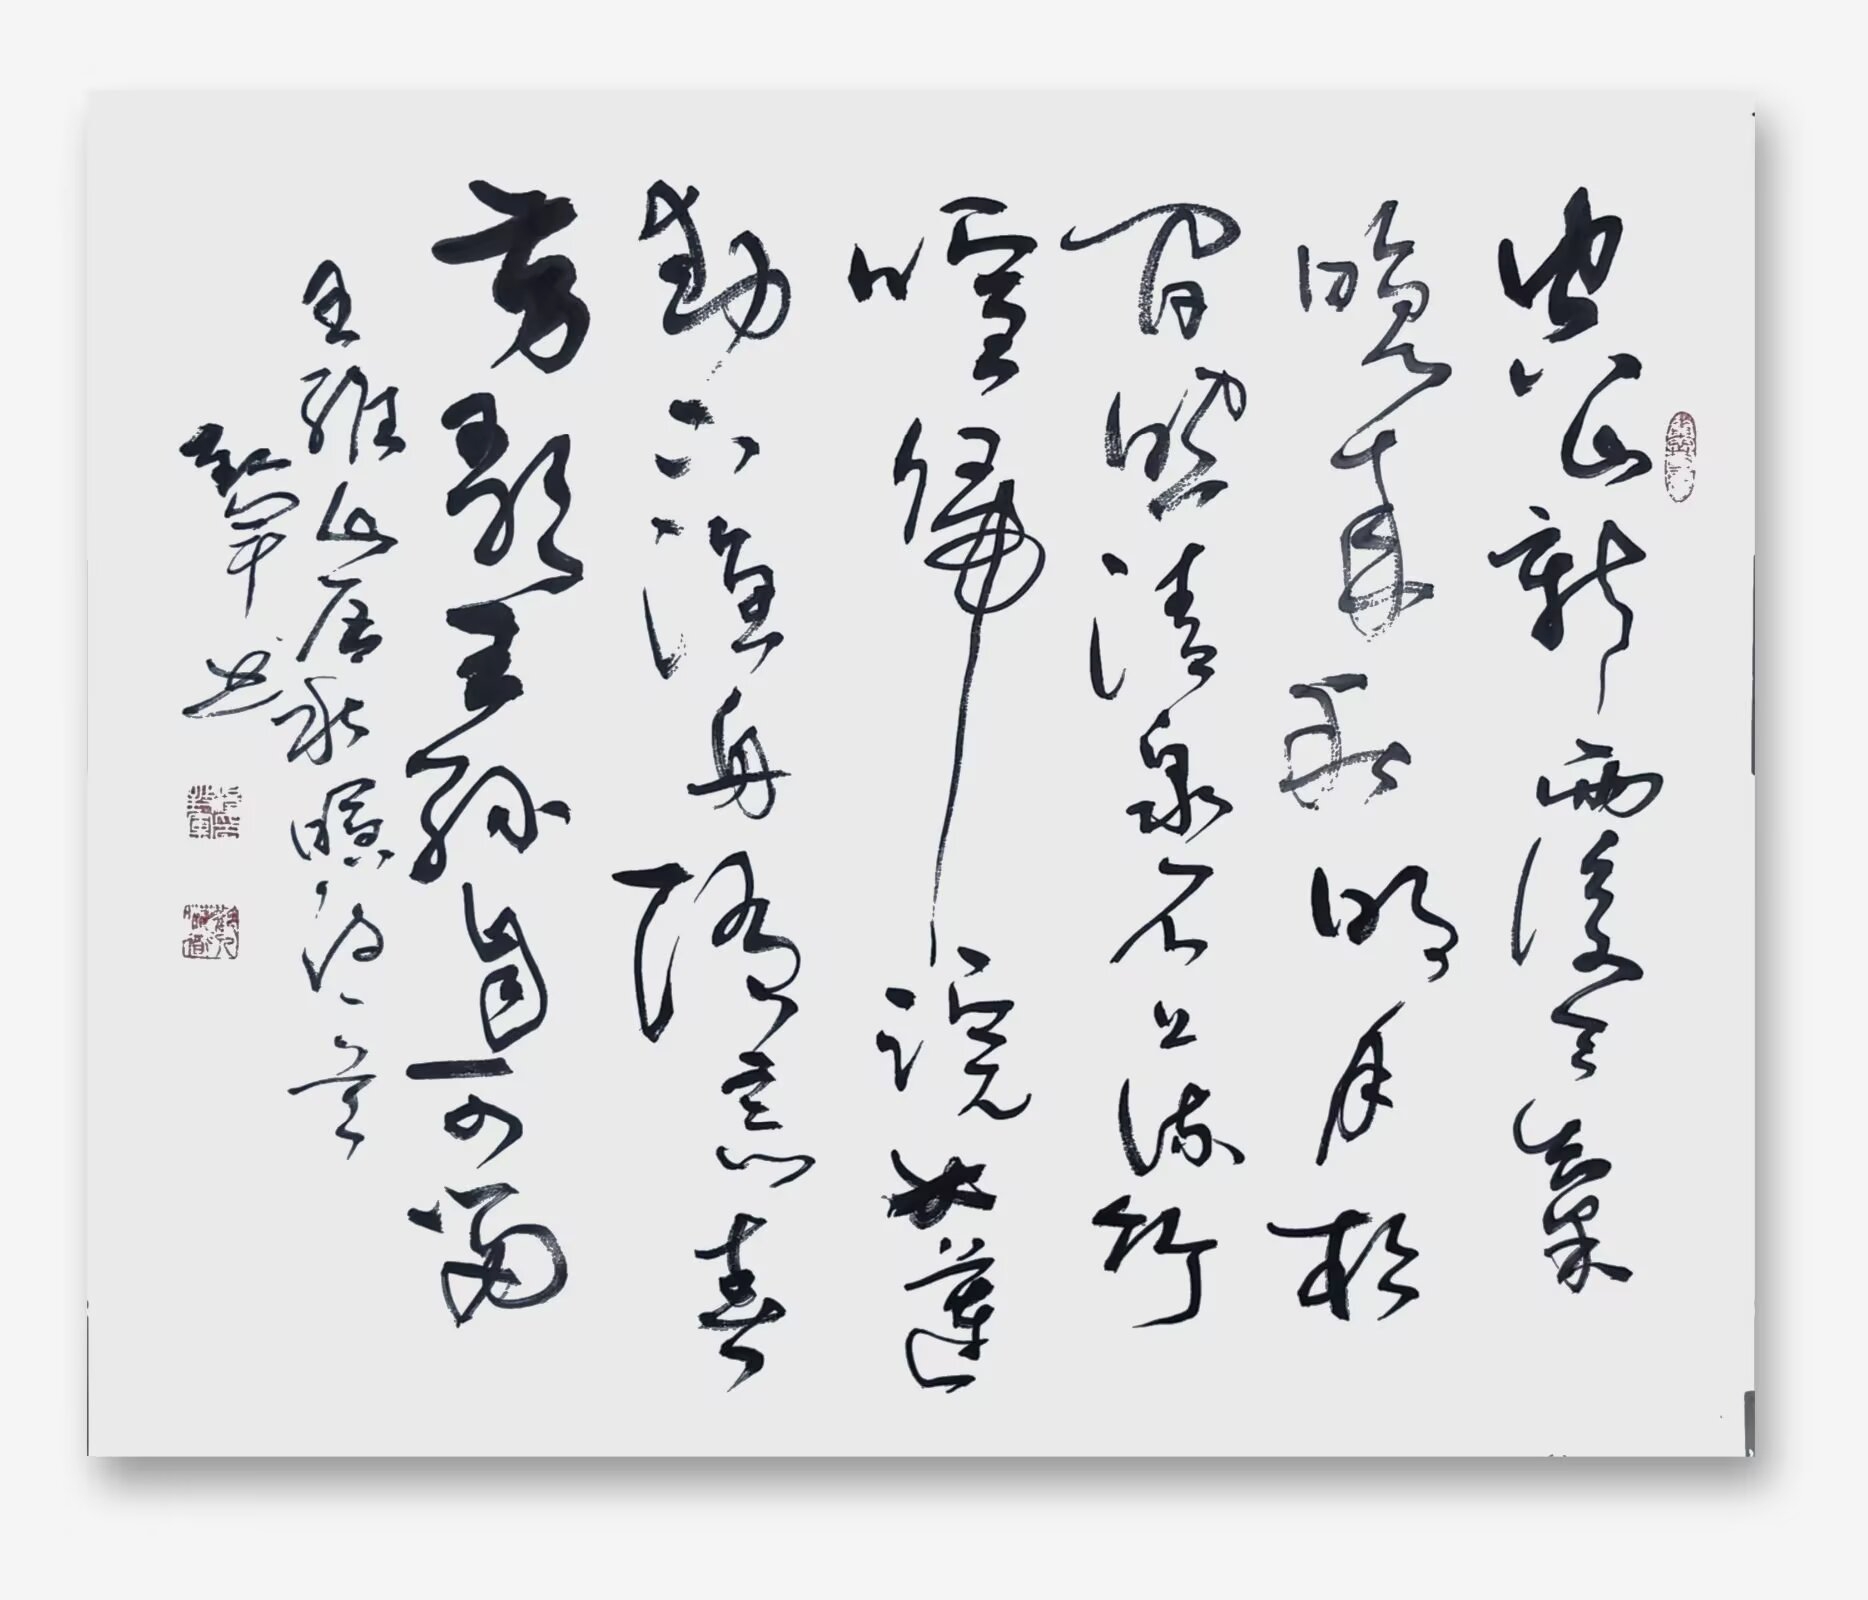 空山新雨後天氣
晚来秋明月松
間照清泉石上流竹
喧歸浣女蓮
動下漁舟隨意春
芳歇王孫自可留
王維山居秋暝詩一首